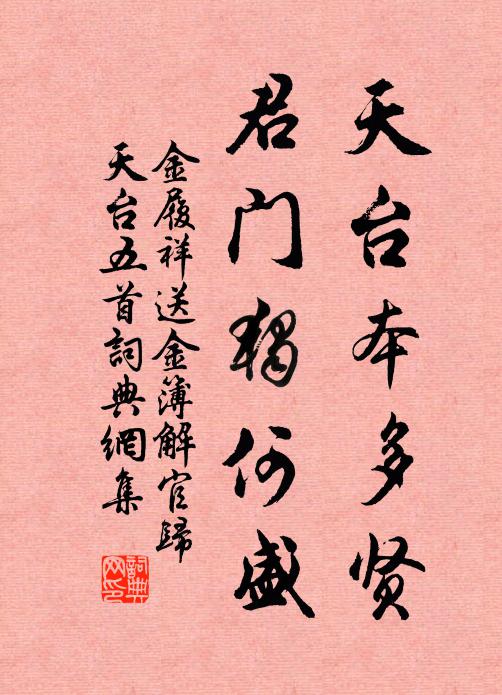 天台本多贤
君门独何盛
金履祥送金簿解官歸
天台五首詞典網集
詞典网印